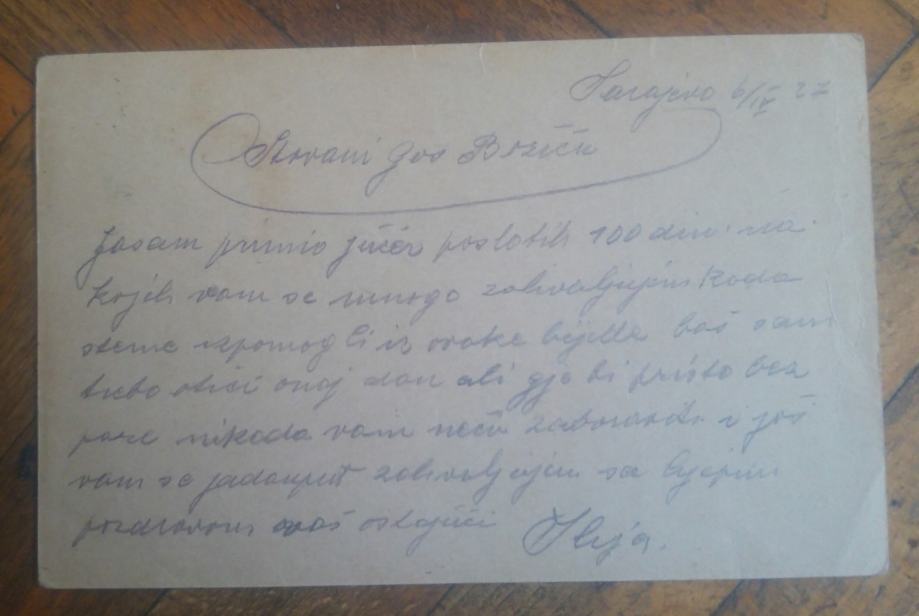 Sarajevo 6/IV 27
Štovani gos Božiću
Jasam primio jučer poslatih 100 din. na
kojih vam se mnogo zahvaljujem kada
steme izpomogli iz ovake bijede baš sam
trebo otići onaj dan ali gje bi pristo bez
pare nikada vam neću zaboraviti i još
vam se jadanput zahvaljujem sa lijepim
pozdravom vaš ostajući Ilija.